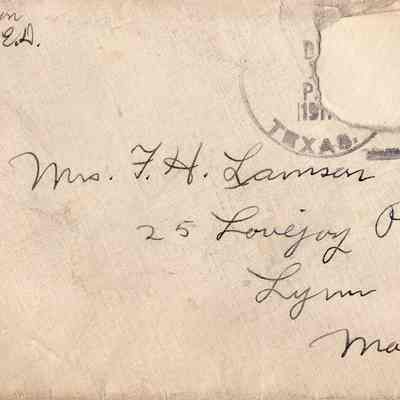 E.D.
D
P.
191
TEXAS.
Mrs. F. H. Lamson
25 Lovejoy P
Lynn
Ma